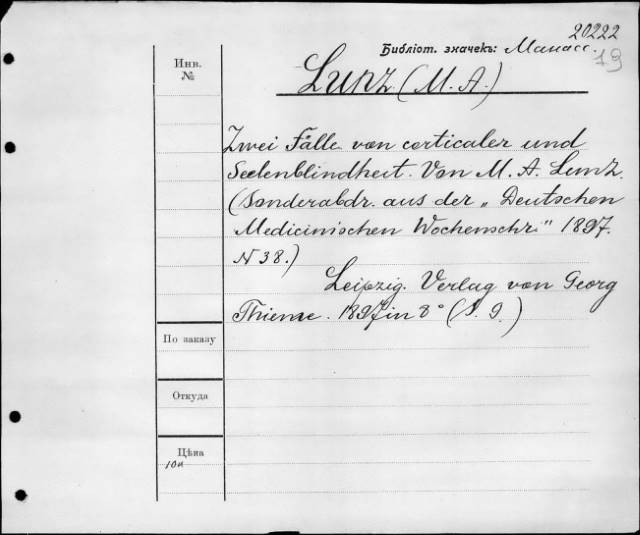 20222
Библіот. значекъ: Манасс.
79
Инв.
№
Lunz (M. A.)
Zwei Fälle von corticaler und
Seelenblindheit. Von M. A. Lunz.
(Sonderabdr. aus der „Deutschen
Medicinischen Wochenschr." 1897.
N 38.)
Leipzig. Verlag von Georg
Thieme. 1897 in 8° (S. 9.)
По заказу
Откуда
Цѣна
10к